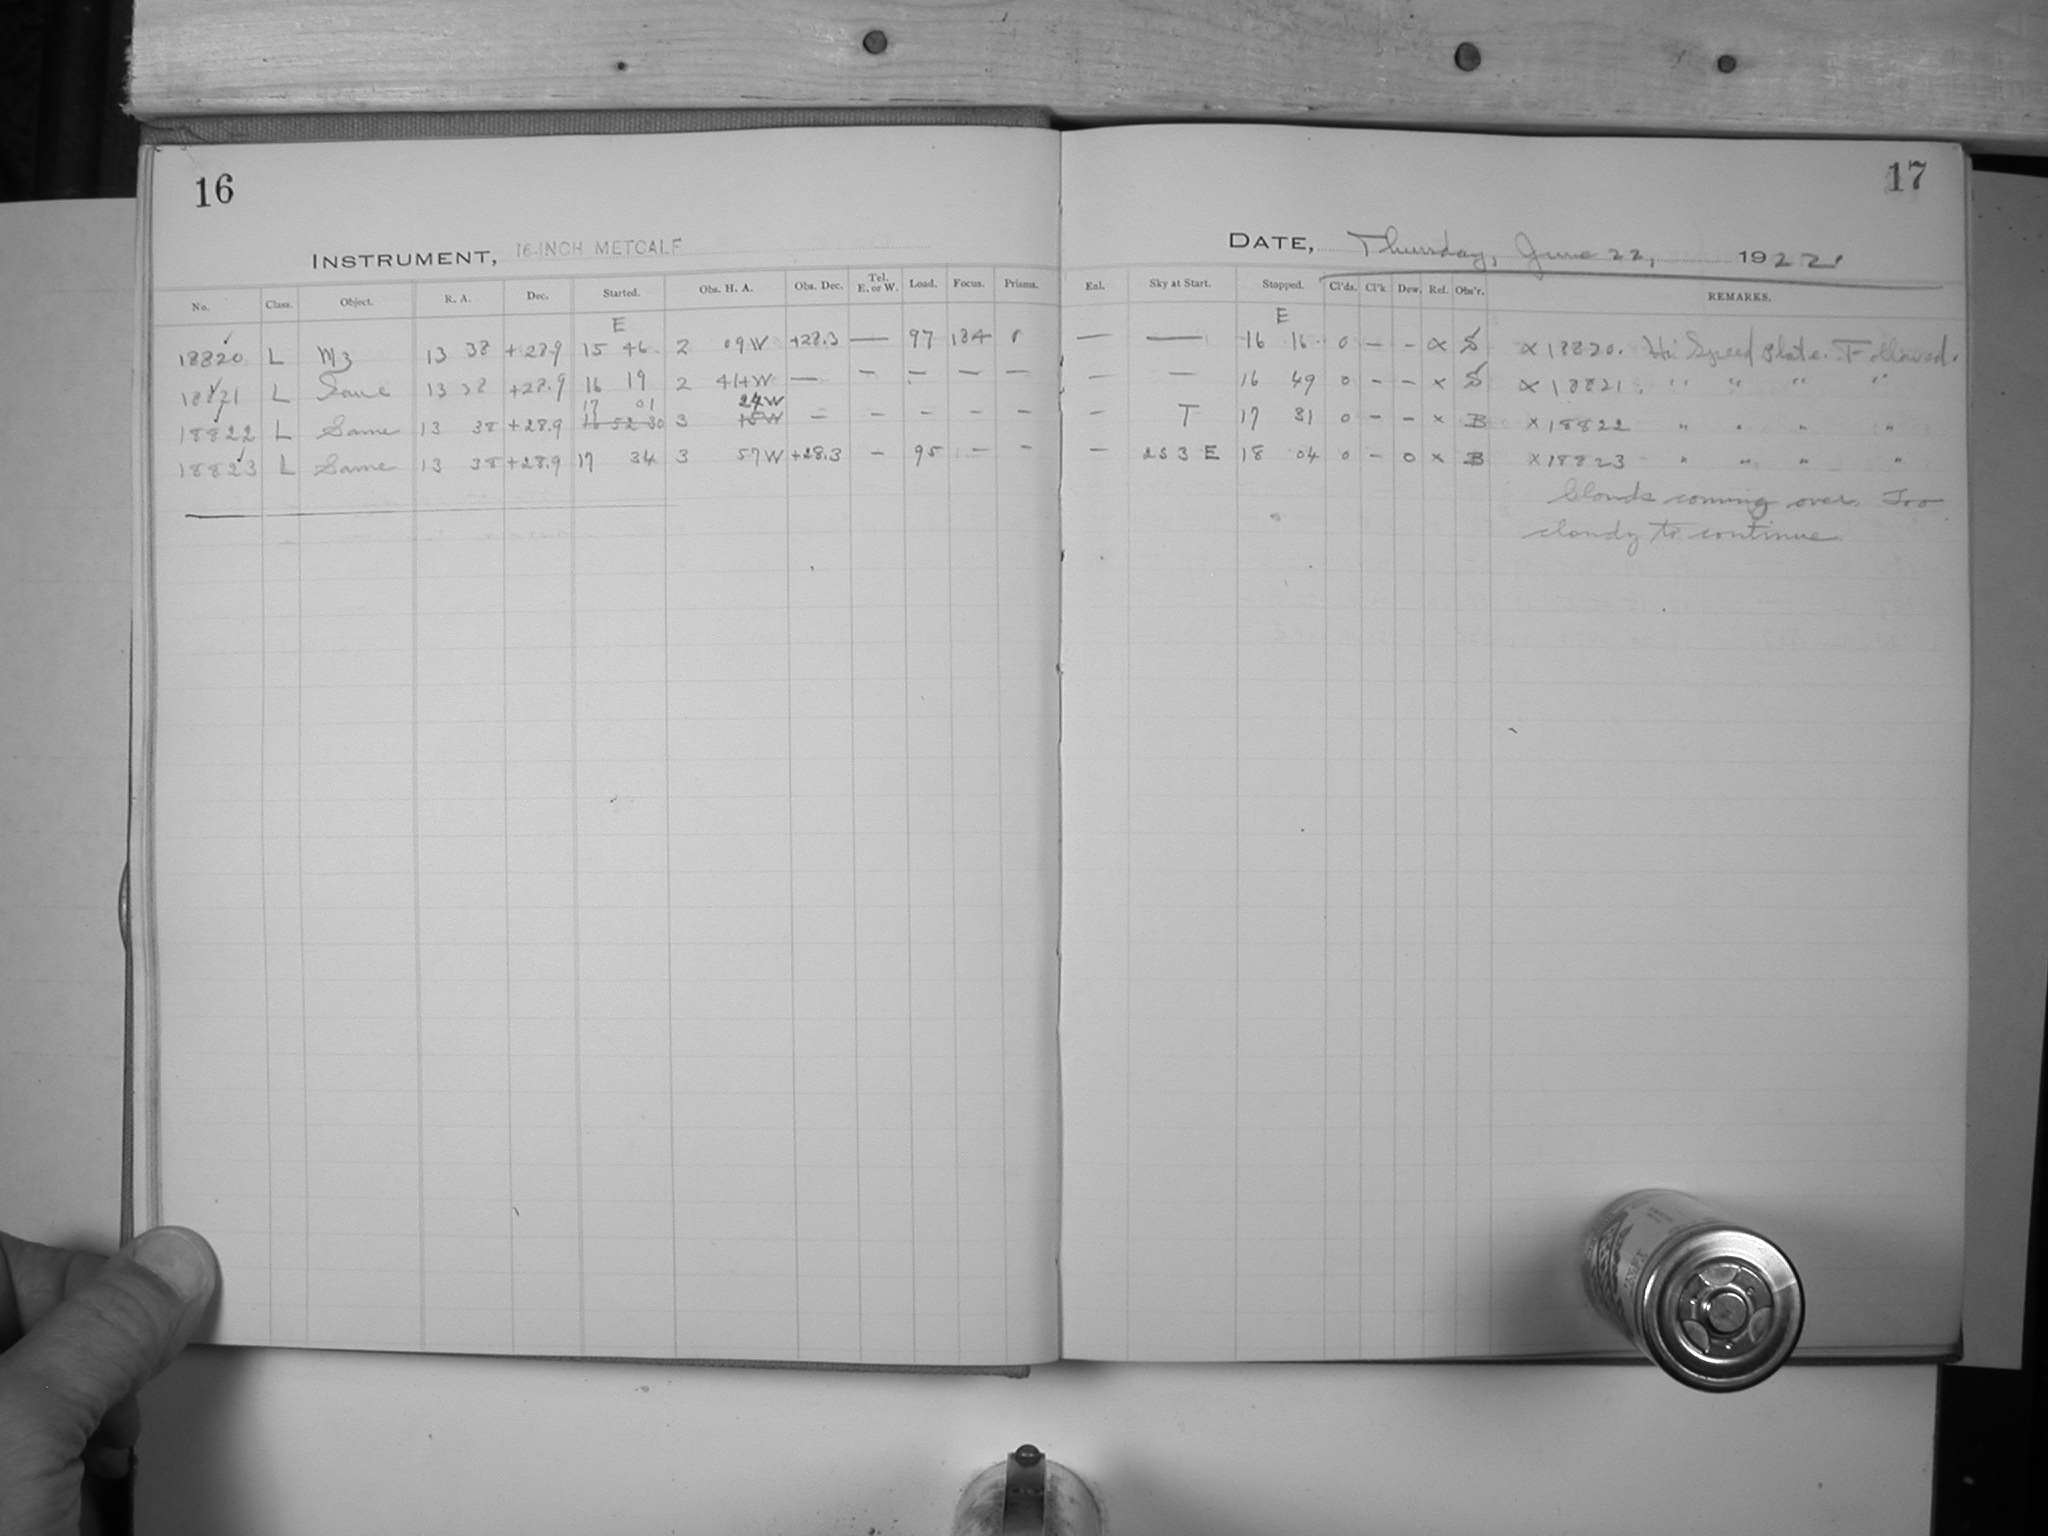 16
17
INSTRUMENT, 16-INCH METCALF
DATE, Thursday, June 22, 1922.
No. Class. Object. R. A. Dec. Started. Obs. H. A. Obs. Dec. Tel. E. or W. Load. Focus. Prisms. Enl. Sky at Start. Stopped. Cl'ds. Cl'k Dew. Ref. Obs'r. REMARKS.
E E
18820 L M3 13 38 +28.9 15 46 2 09W +28.3 — 97 184 — — 16 16 0 – – x S x18820. Hi Speed Plate. Followed.
18821 L Same 13 38 +28.9 16 19 2 41W — — — — — — — 16 49 0 – – x S x18821. " " " "
17 01 24W
18822 L Same 13 38 +28.9 16 52 30 3 15W – – – – – – T 17 31 0 – – x B x18822 " " " "
18823 L Same 13 38 +28.9 17 34 3 57W +28.3 – 95 – – – 253 E 18 04 0 – 0 x B x18823 " " " "
Clouds coming over. Too
cloudy to continue.